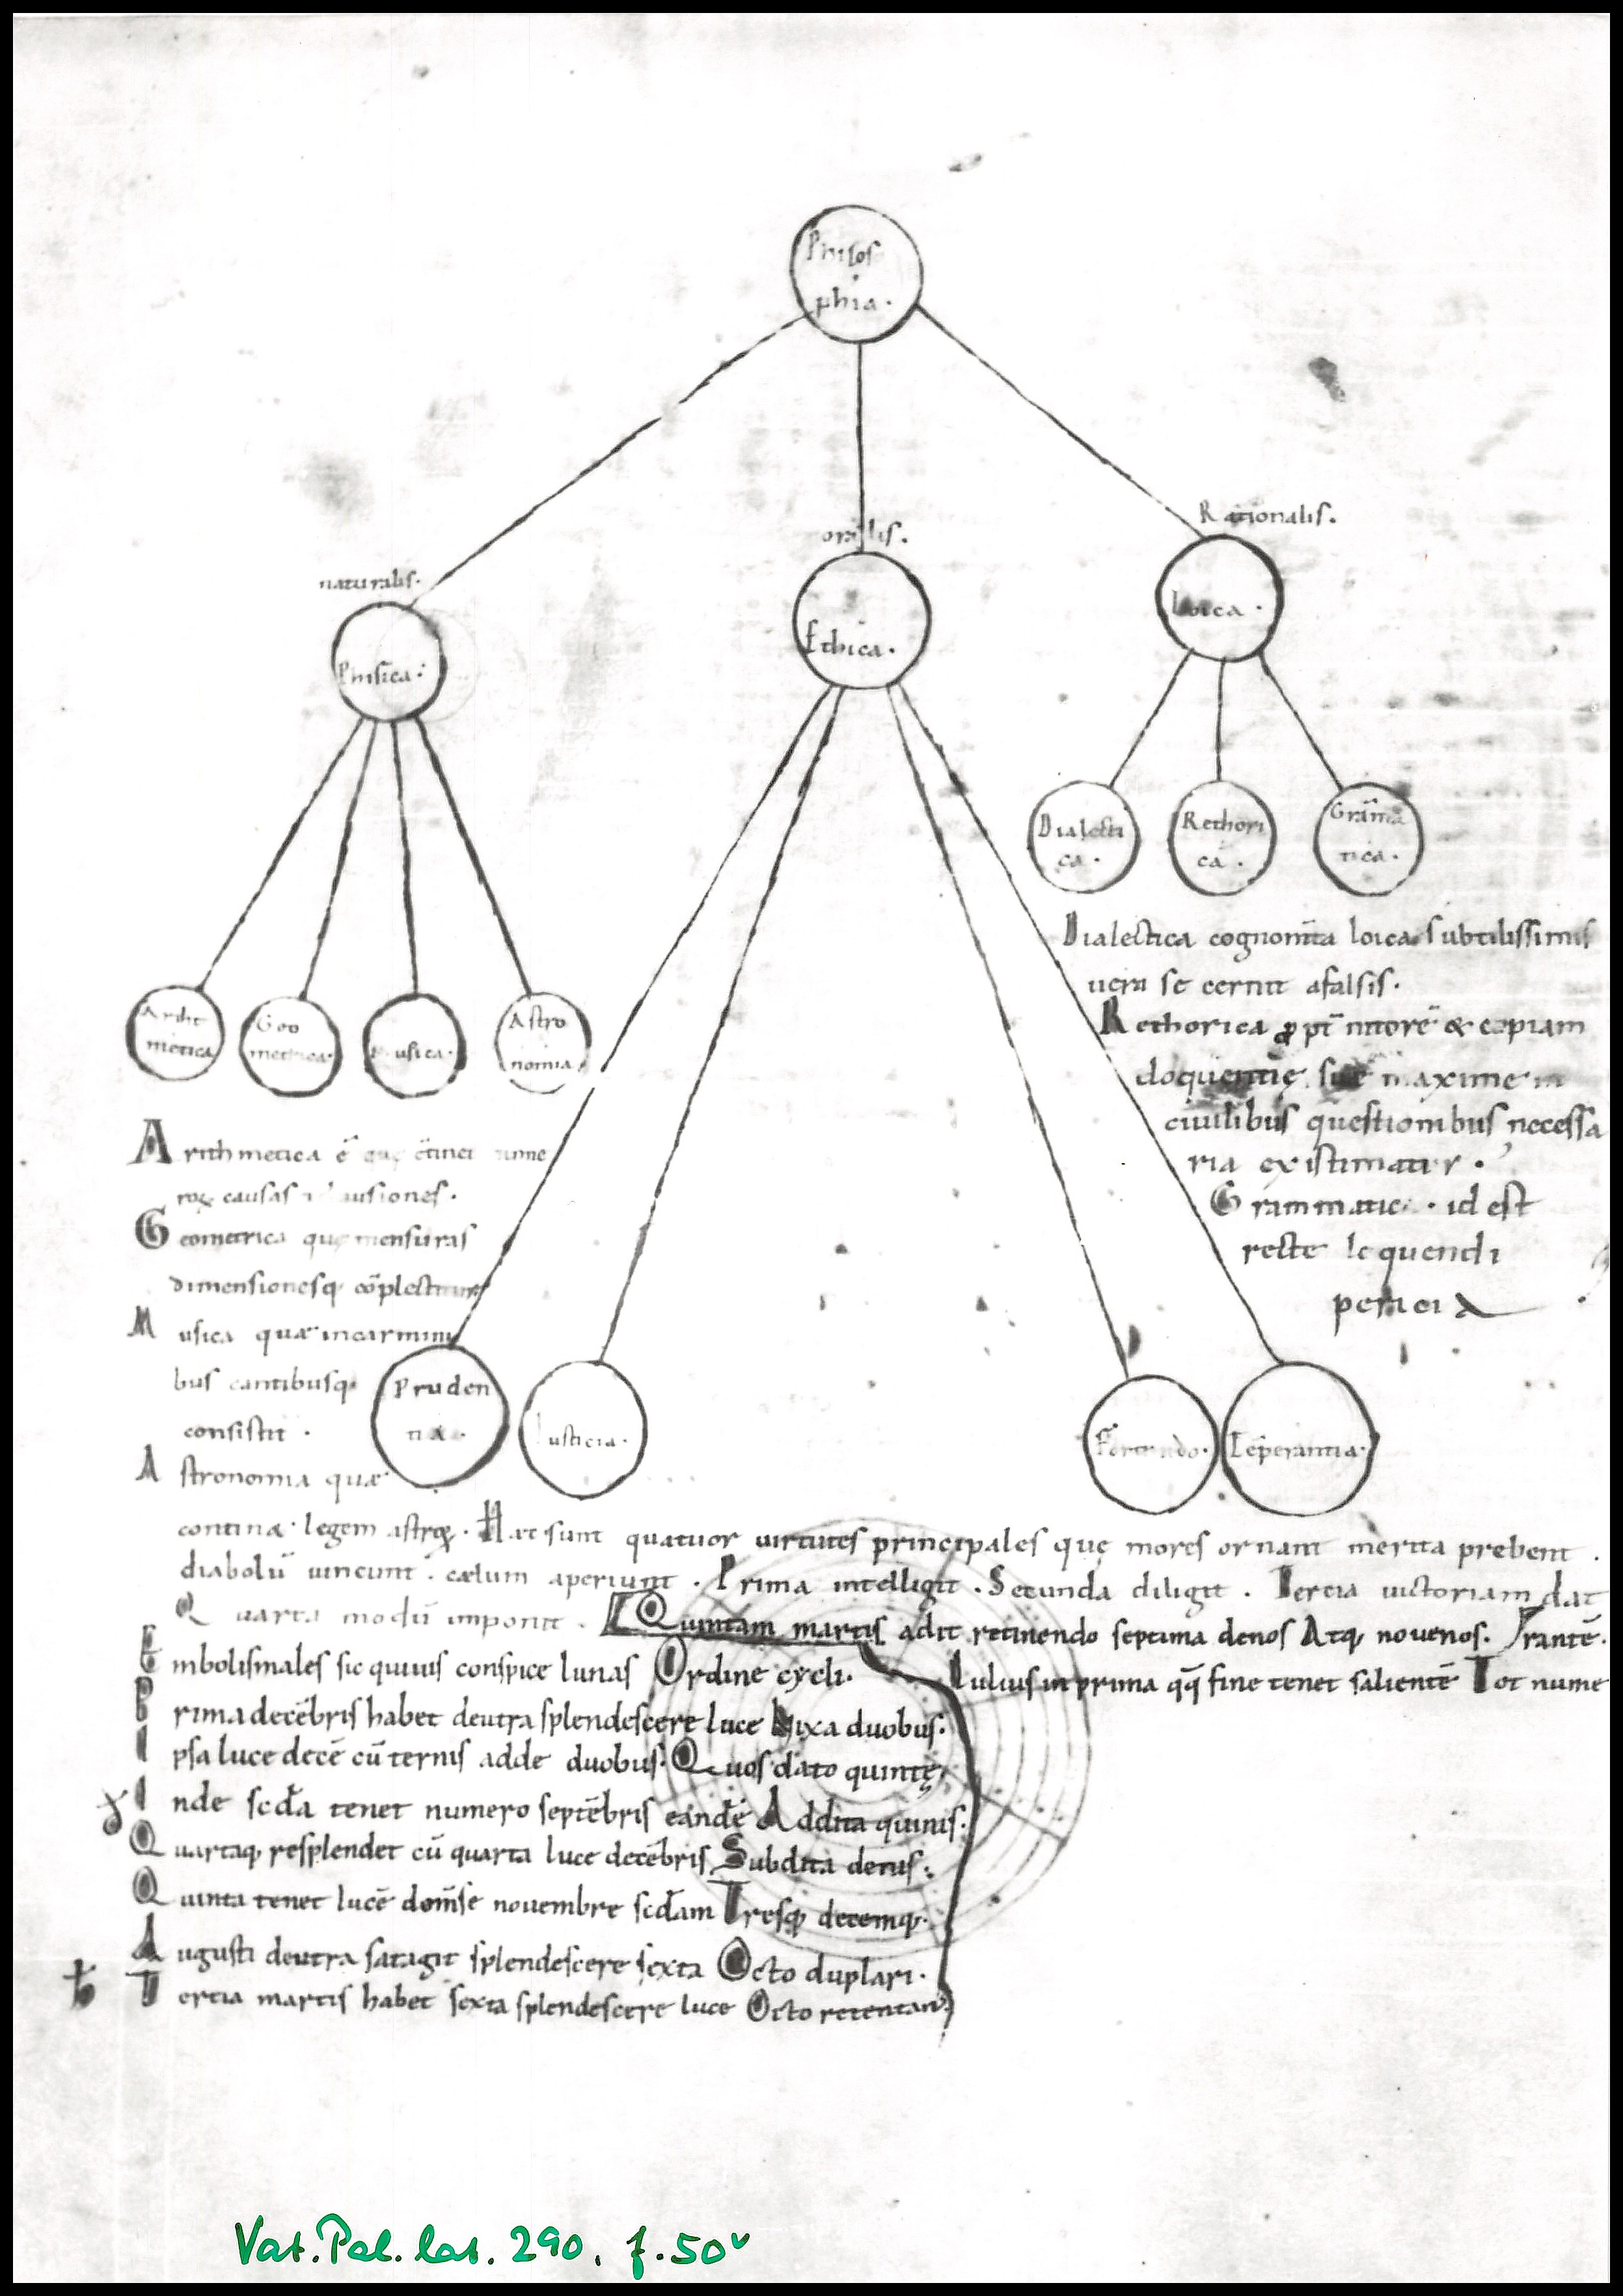 Philoſ
phia.
Rationaliſ.
naturaliſ.
Ethica.
Loica.
Phiſica:
Dialecti
ca.
Rethori
ca.
Gram̄a
tica.
Arith
metica
Geo
metrica.
uſica.
Aſtro
nomia
Dialectica cognom̄ta loica ſubtiliſſimiſ
uera ſe cernit afalſiſ.
Rethorica ꝓpt̄ nitorē & copiam
eloquentię maxime in
ciuilibuſ queſtionibuſ neceſſa
ria exiſtimatur.
Grammatica. id eſt
recte loquendi
pericia
Arithmetica ē quę c̄tinet nume
roꝝ cauſaſ
Geometrica quę menſuraſ
dimenſioneſq; cōplectitur
Muſica quæ incarmini
buſ cantibuſq;
conſiſtit.
Aſtronomia quæ
continæ legem aſtroꝝ.
Pruden
tia.
Iuſticia.
Fortitudo.
Tēperantia.
Hæ ſunt quatuor uirtuteſ principaleſ quę moreſ ornant merita prebent.
diabolū uincunt. cælum aperiunt. Prima intelligit. Secunda diligit. Tercia uictoriam dat
Quarta modū imponit. Quintam martiſ adit retinendo ſeptima denoſ Atq; nouenoſ.
Emboliſmaleſ ſic quiuiſ conſpice lunaſ Ordine cycli. Iuliuſ in prima qq̄ fine tenet ſalientē Tot nume
Prima decēbriſ habet deutra ſplendeſcere luce Nixa duobuſ.
Ipſa luce decē cū terniſ adde duobuſ. Quoſ dato quintę,
Inde ſcd̄a tenet numero ſeptēbriſ eandē Addita quiniſ:
Quartaq; reſplendet cū quarta luce decēbriſ Subdita deniſ:
Quinta tenet lucē dom̄ſe nouembre ſcd̄am Treſq; decemq;.
Auguſti deutra ſatagit ſplendeſcere ſexta Octo duplari.
Tertia martiſ habet ſexta ſplendeſcere luce Octo retentans
Vat. Pal. lat. 290. f. 50ᵛ